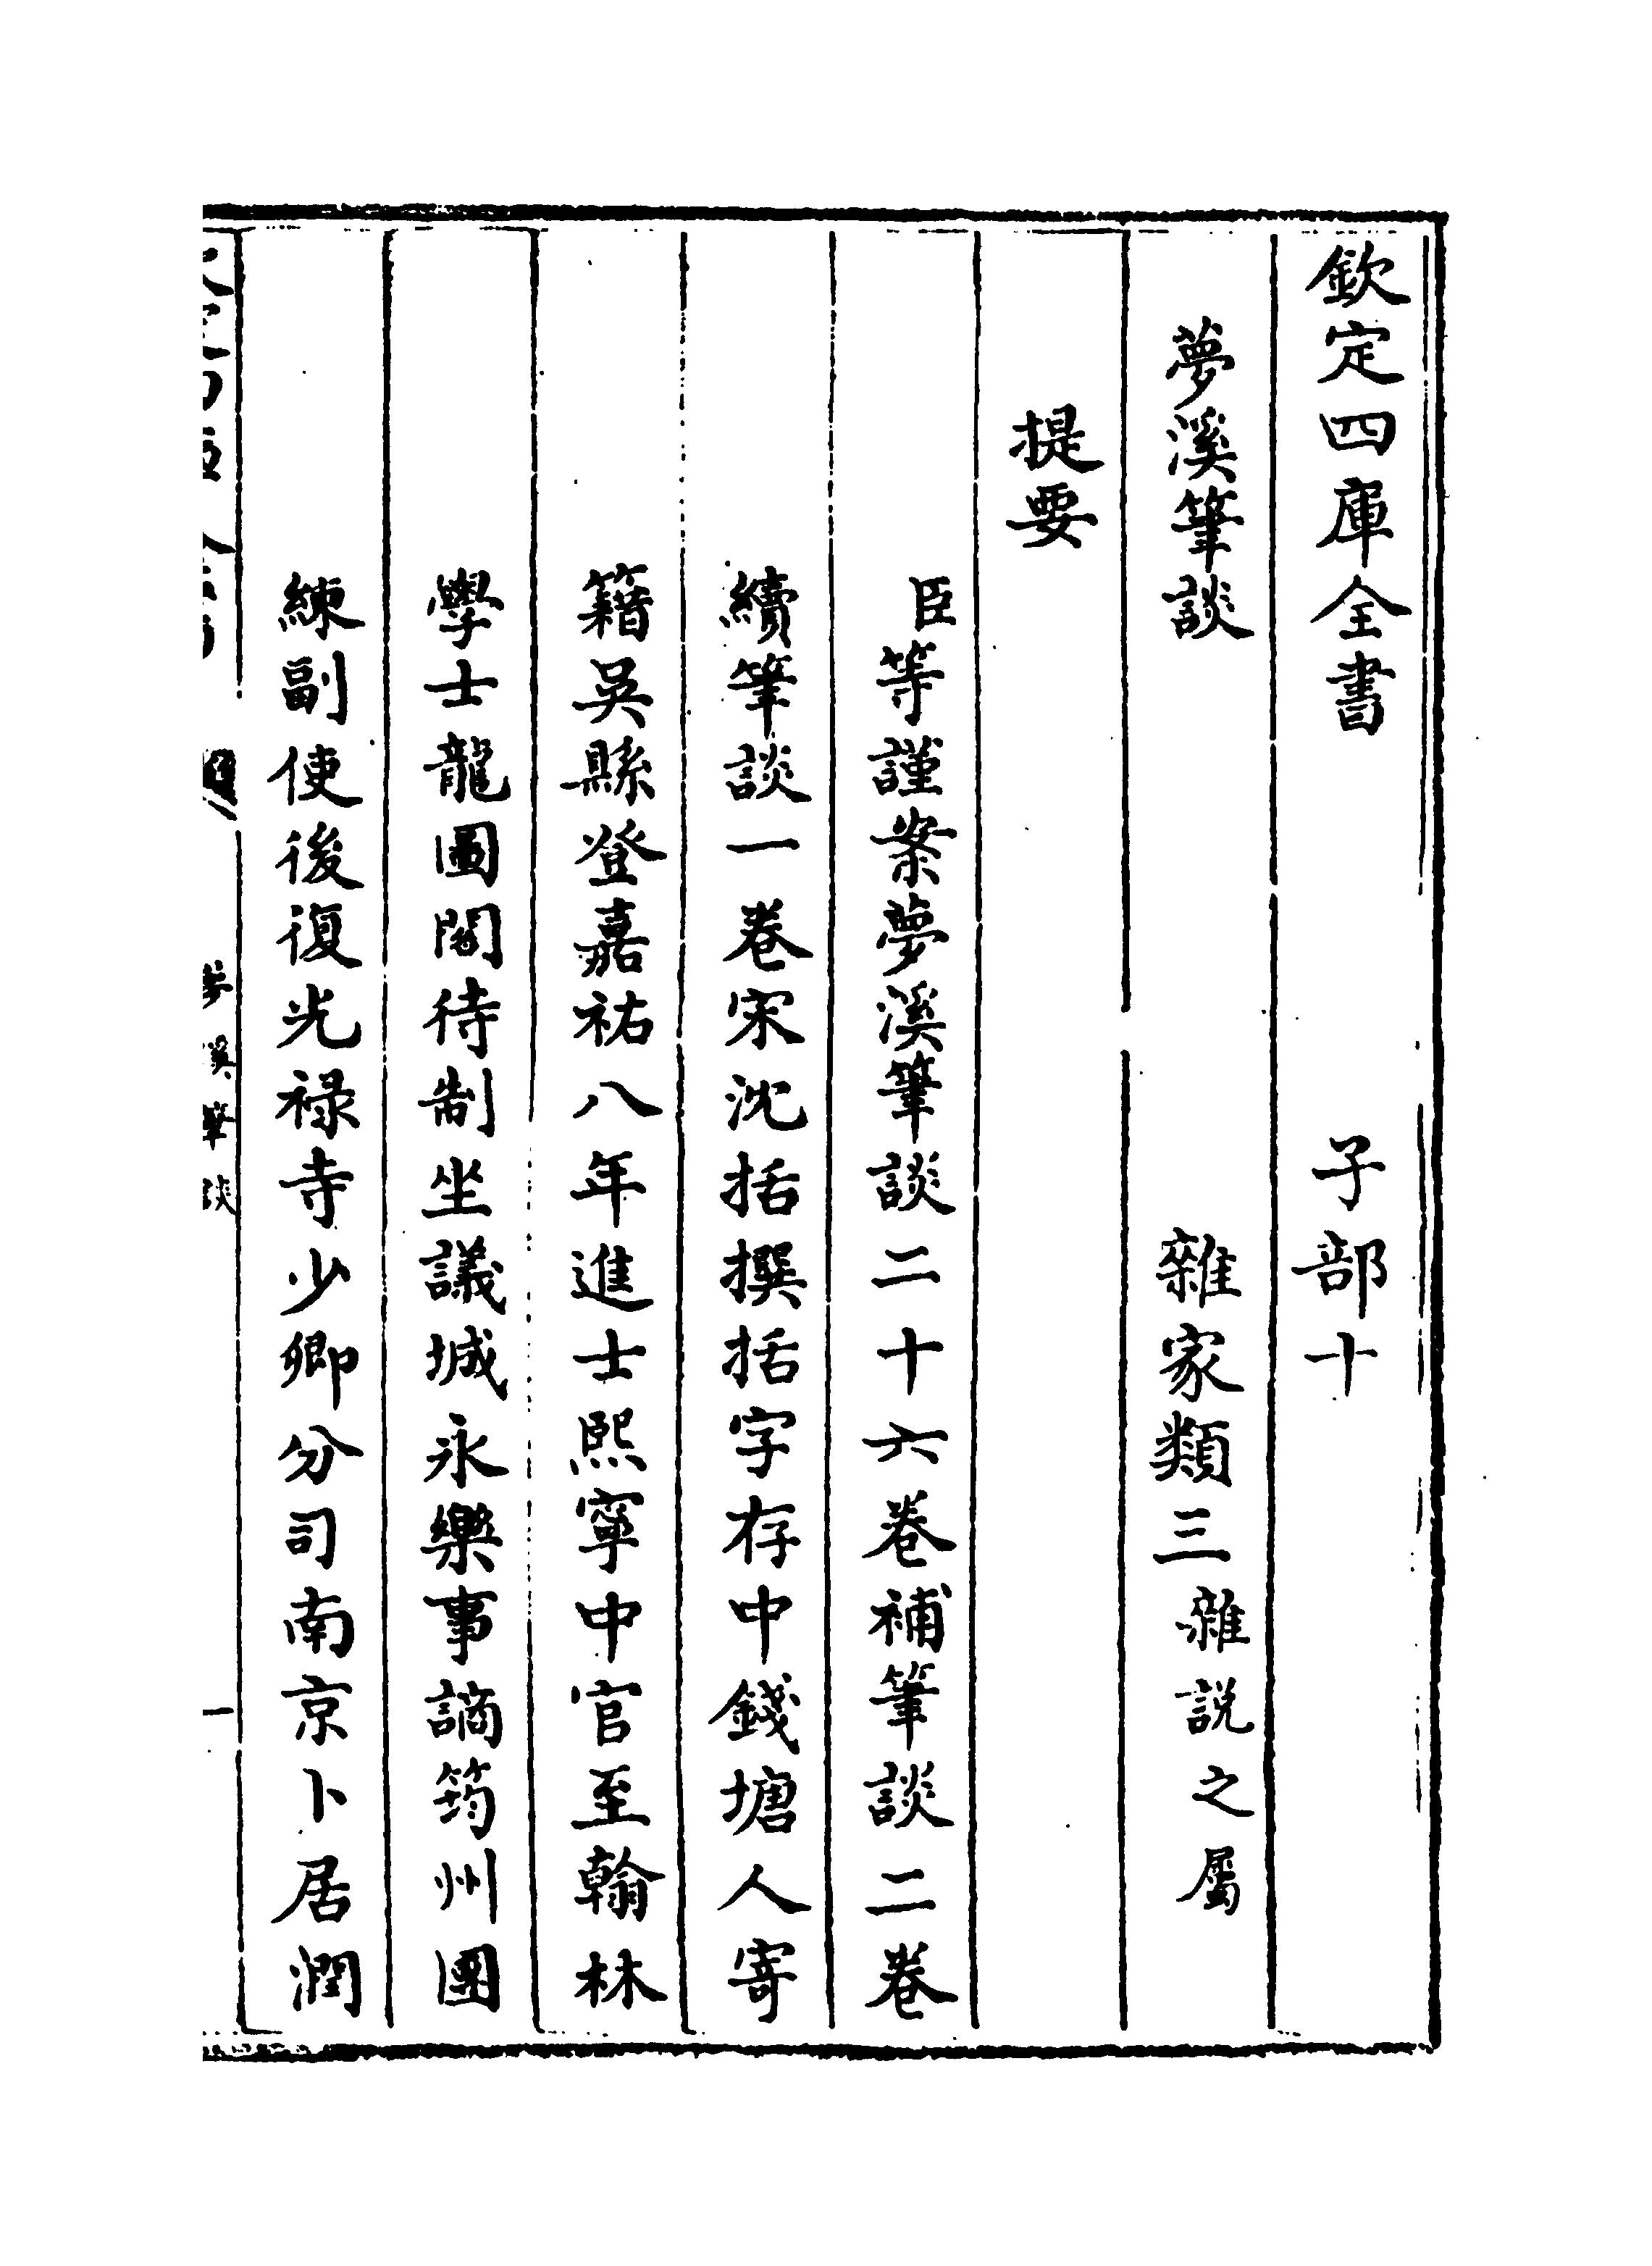 欽定四庫全書　子部十
夢溪筆談　雜家類三雜説之屬
提要
臣等謹案夢溪筆談二十六卷補筆談二卷
續筆談一卷宋沈括撰括字存中錢塘人寄
籍吳縣登嘉祐八年進士熙寧中官至翰林
學士龍圖閣待制坐議城永樂事謫筠州團
練副使後復光禄寺少卿分司南京卜居潤
夢溪筆談
一